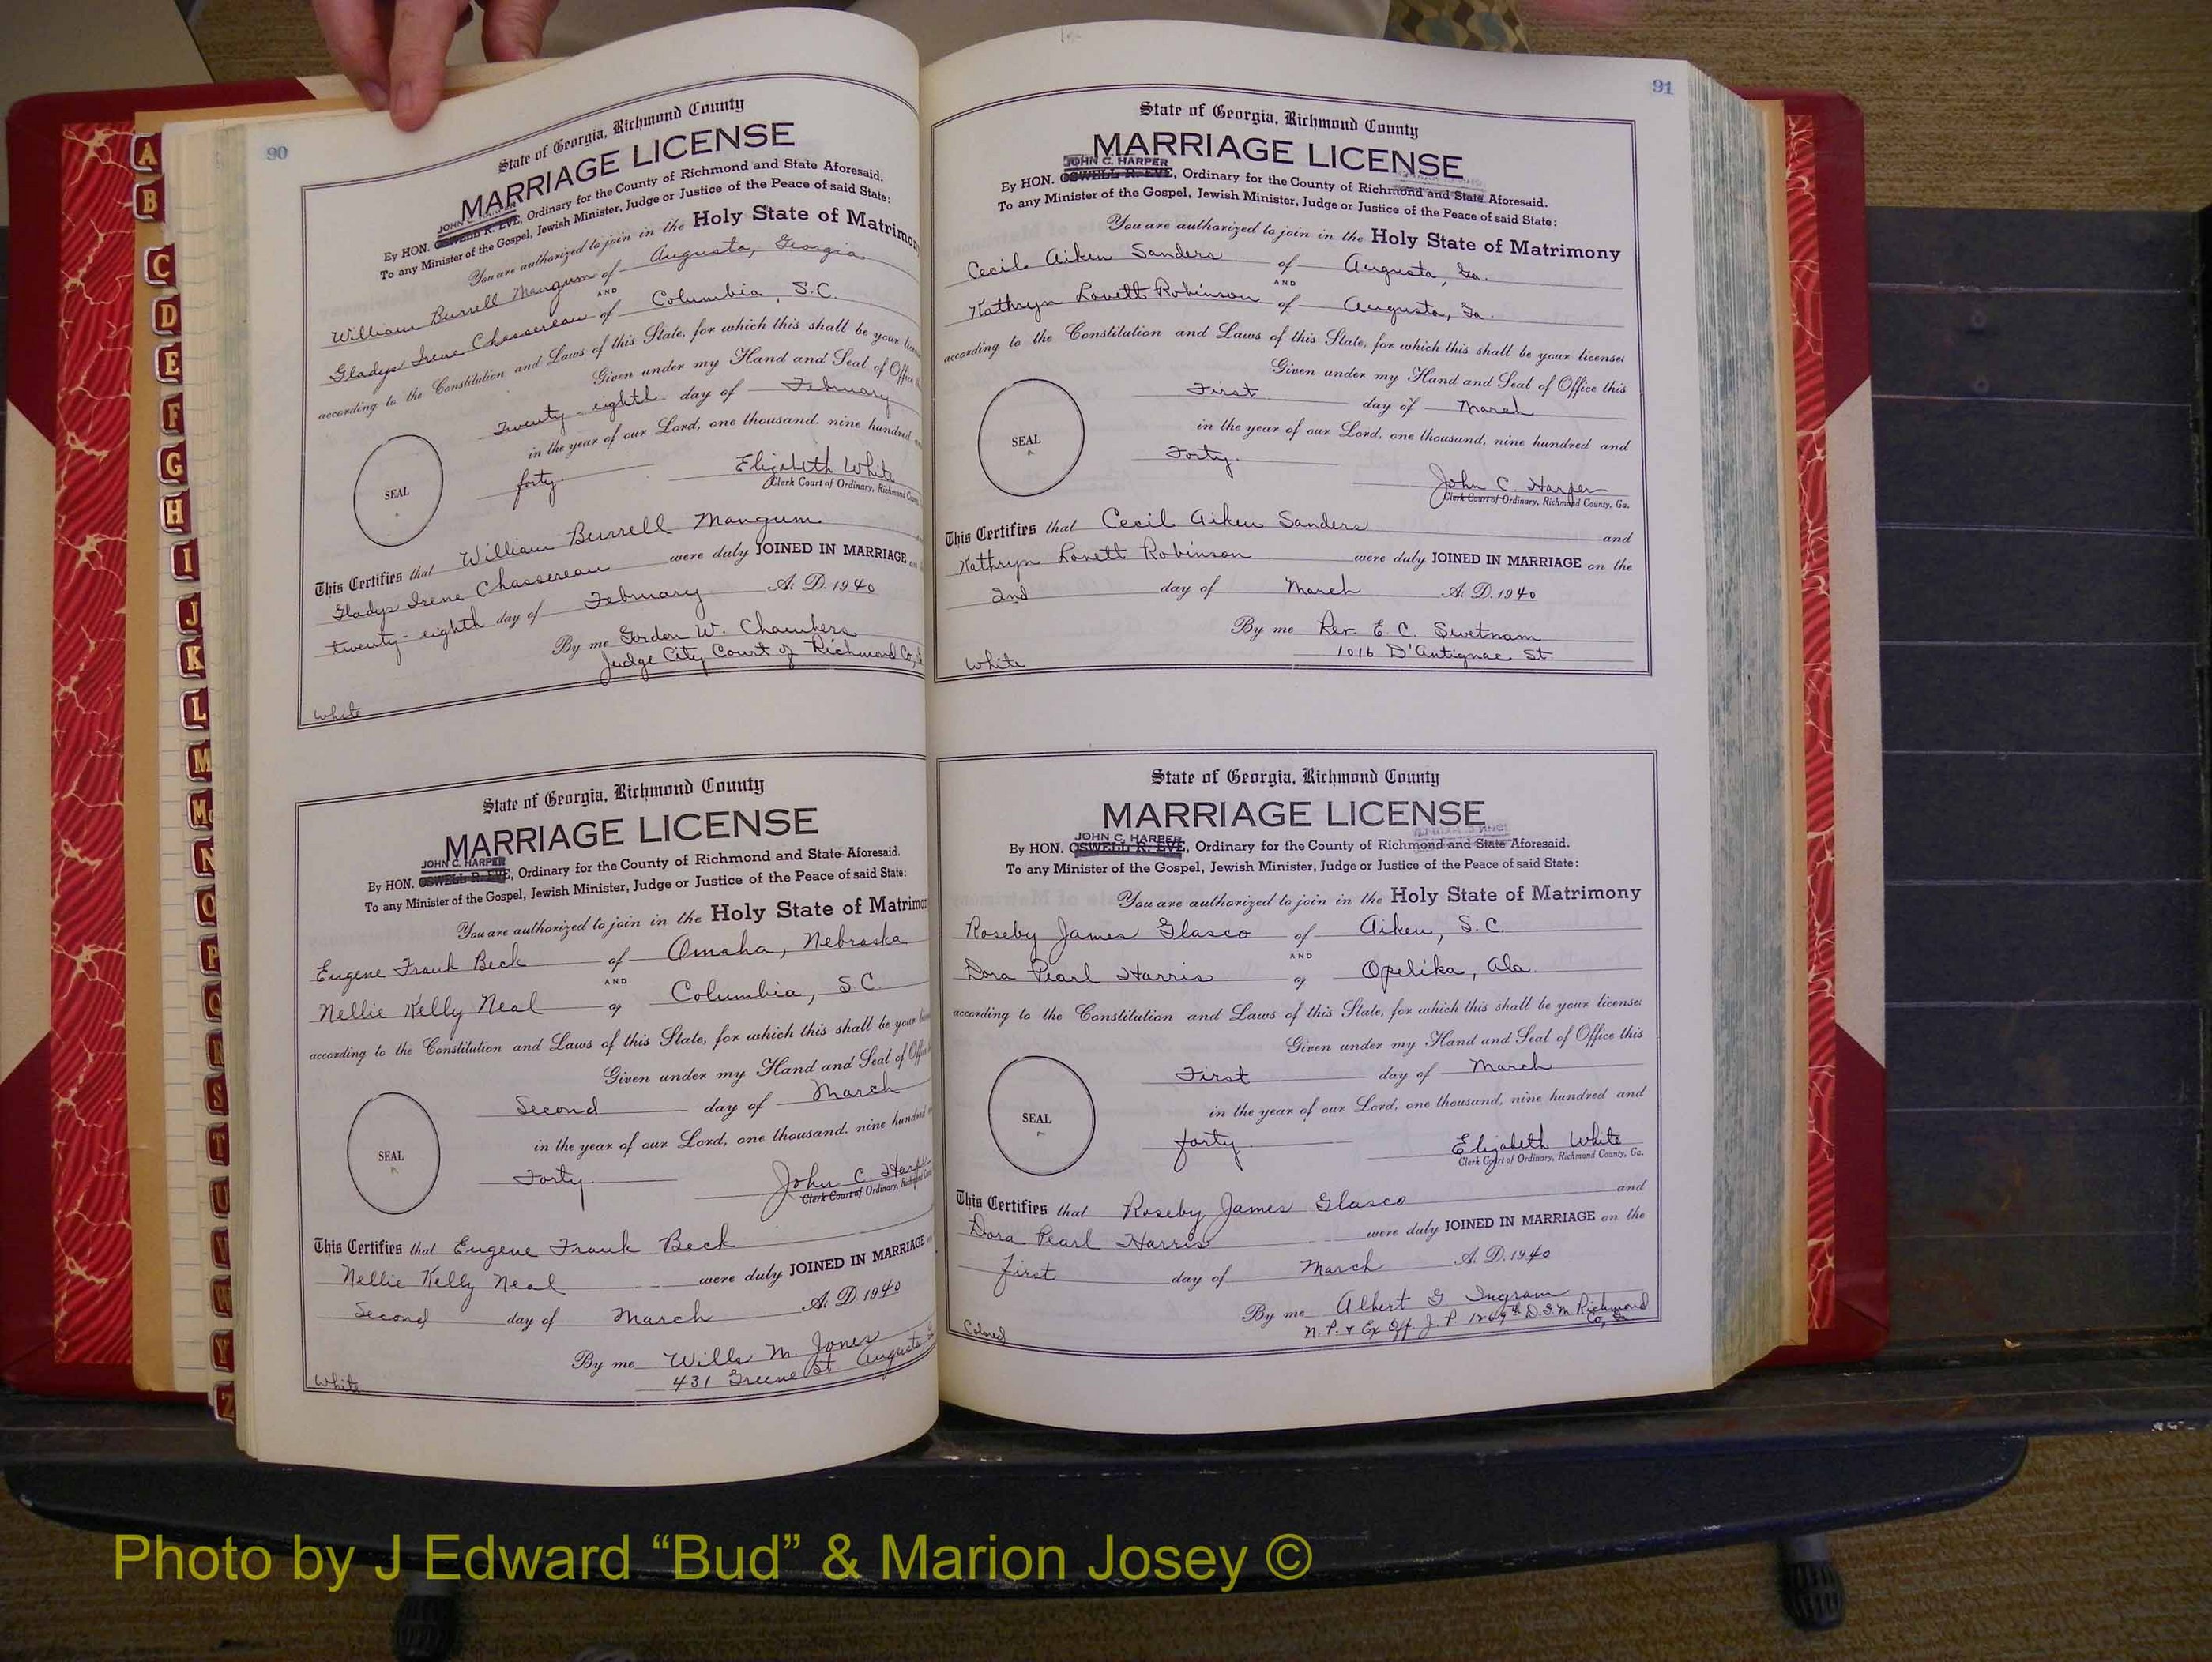 90
State of Georgia, Richmond County
MARRIAGE LICENSE
JOHN C. HARPER
By HON. OSWELL R. EVE, Ordinary for the County of Richmond and State Aforesaid.
To any Minister of the Gospel, Jewish Minister, Judge or Justice of the Peace of said State:
You are authorized to join in the Holy State of Matrimo
William Burrell Mangum of Augusta, Georgia
AND
Gladys Irene Chassereau of Columbia, S.C.
according to the Constitution and Laws of this State, for which this shall be your
Given under my Hand and Seal of Office
Twenty-eighth day of February
in the year of our Lord, one thousand, nine hundred
forty
SEAL
Elizabeth White
Clerk Court of Ordinary, Richmond
This Certifies that William Burrell Mangum
Gladys Irene Chassereau were duly JOINED IN MARRIAGE
twenty-eighth day of February A. D. 1940
By me Gordon W. Chambers
Judge City Court of Richmond Co,
White
State of Georgia, Richmond County
MARRIAGE LICENSE
JOHN C. HARPER
By HON. OSWELL R. EVE, Ordinary for the County of Richmond and State Aforesaid.
To any Minister of the Gospel, Jewish Minister, Judge or Justice of the Peace of said State:
You are authorized to join in the Holy State of Matrimo
Eugene Frank Beck of Omaha, Nebraska
AND
Nellie Kelly Neal of Columbia, S.C.
according to the Constitution and Laws of this State, for which this shall be your
Given under my Hand and Seal of
Second day of March
in the year of our Lord, one thousand, nine hundred
Forty
SEAL
John C. Harp
Clerk Court of Ordinary, Richmond
This Certifies that Eugene Frank Beck
Nellie Kelly Neal were duly JOINED IN MARRIAGE
Second day of March A. D. 1940
By me Wills M. Jones
431 Greene St Augusta
White
91
State of Georgia, Richmond County
MARRIAGE LICENSE
JOHN C. HARPER
By HON. OSWELL R. EVE, Ordinary for the County of Richmond and State Aforesaid.
To any Minister of the Gospel, Jewish Minister, Judge or Justice of the Peace of said State:
You are authorized to join in the Holy State of Matrimony
Cecil Aiken Sanders of Augusta, Ga.
AND
Kathryn Lovett Robinson of Augusta, Ga.
according to the Constitution and Laws of this State, for which this shall be your license:
Given under my Hand and Seal of Office this
First day of March
in the year of our Lord, one thousand, nine hundred and
Forty.
SEAL
John C. Harper
Clerk Court of Ordinary, Richmond County, Ga.
This Certifies that Cecil Aiken Sanders and
Kathryn Lovett Robinson were duly JOINED IN MARRIAGE on the
2nd day of March A. D. 1940
By me Rev. E. C. Swetnam
1016 D'Antignac St.
White
State of Georgia, Richmond County
MARRIAGE LICENSE
JOHN C. HARPER
By HON. OSWELL R. EVE, Ordinary for the County of Richmond and State Aforesaid.
To any Minister of the Gospel, Jewish Minister, Judge or Justice of the Peace of said State:
You are authorized to join in the Holy State of Matrimony
Roseby James Glasco of Aiken, S.C.
AND
Dora Pearl Harris of Opelika, Ala.
according to the Constitution and Laws of this State, for which this shall be your license:
Given under my Hand and Seal of Office this
First day of March
in the year of our Lord, one thousand, nine hundred and
forty.
SEAL
Elizabeth White
Clerk Court of Ordinary, Richmond County, Ga.
This Certifies that Roseby James Glasco and
Dora Pearl Harris were duly JOINED IN MARRIAGE on the
first day of March A. D. 1940
By me Albert G Ingram
N. P. & Ex Off. J. P. 1269th D. G. M. Richmond
Co, Ga
Colored
A
B
C
D
E
F
G
H
I
J
K
L
M
Mc
N
O
P
Q
R
S
T
U
V
W
Y
Z
Photo by J Edward “Bud” & Marion Josey ©